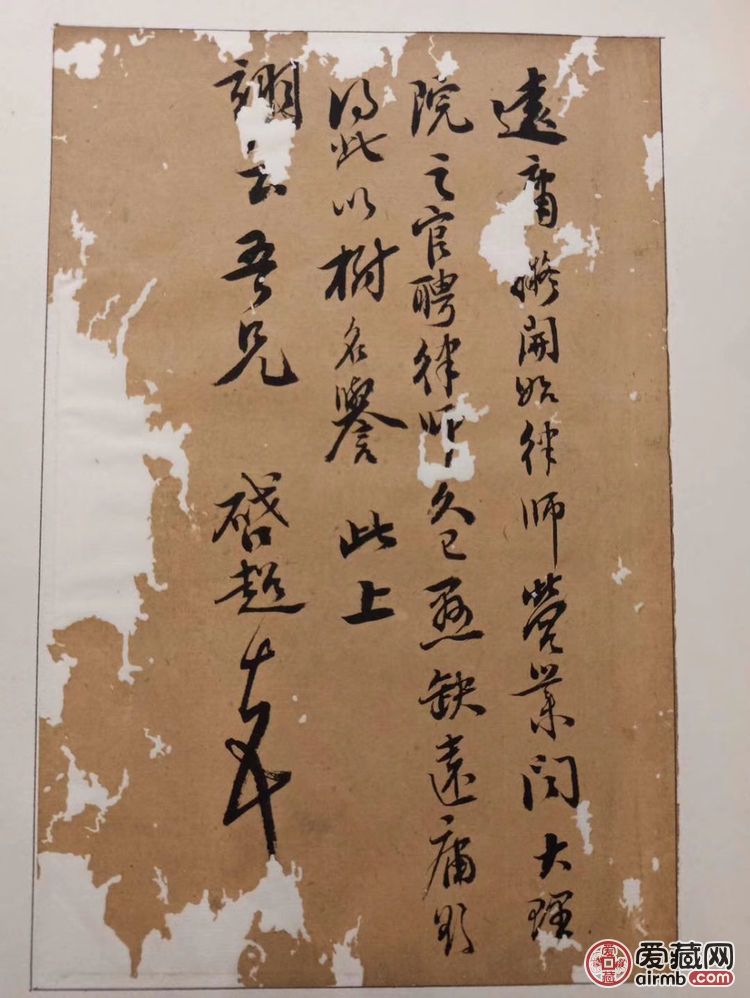 遠庸擬開始律師營業聞大理
院之官聘律師久已懸缺遠庸欲
得此以樹名譽 此上
翊云吾兄 啓超
爱藏网
airmb.com